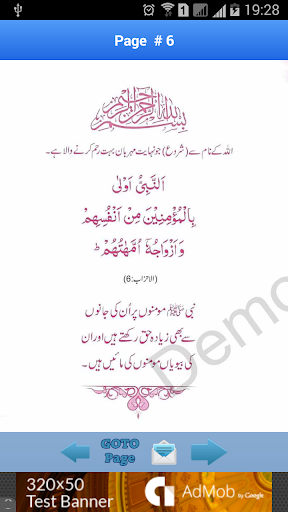 19:28
Page # 6
بسم اللہ الرحمن الرحیم
اللہ کے نام سے (شروع) جو نہایت مہربان بہت رحم کرنے والا ہے۔
اَلنَّبِیُّ اَوْلٰی
بِالْمُؤْمِنِیْنَ مِنْ اَنْفُسِهِمْ
وَ اَزْوَاجُهٗۤ اُمَّهٰتُهُمْ ؕ
(الاحزاب:6)
نبی ﷺ مومنوں پر اُن کی جانوں
سے بھی زیادہ حق رکھتے ہیں اور ان
کی بیویاں مومنوں کی مائیں ہیں۔
Demo
GOTO
Page
320x50
Test Banner
AdMob by Google